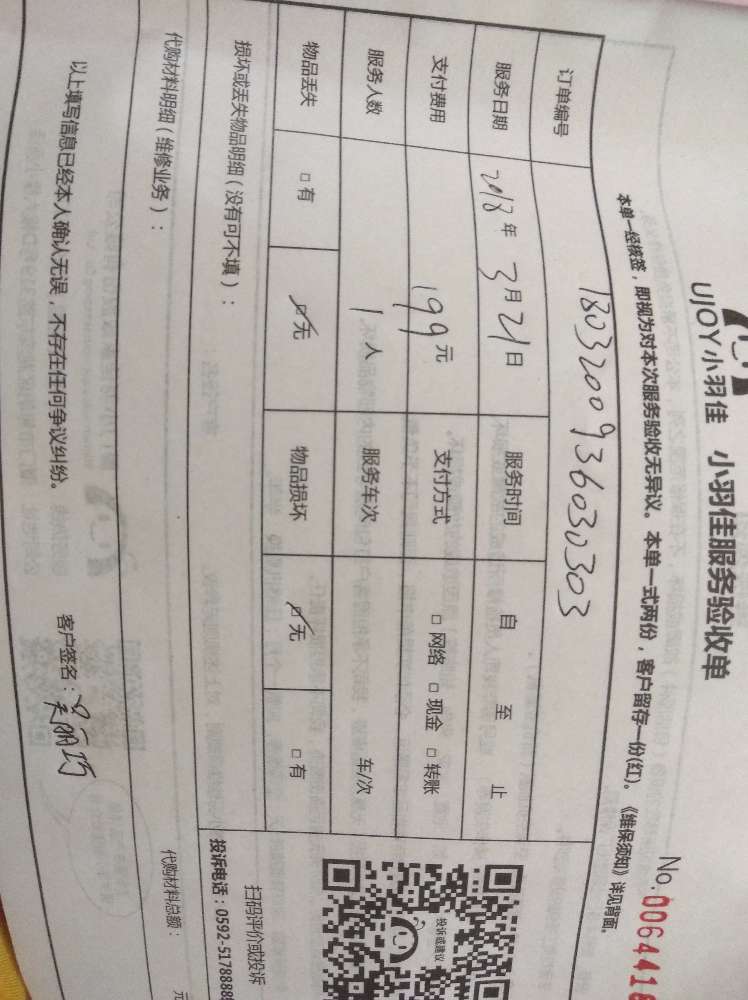 UJOY小羽佳 小羽佳服务验收单
No.0064418
本单一经核签，即视为对本次服务验收无异议。本单一式两份，客户留存一份(红)。《维保须知》详见背面。
订单编号 1803200936030303
服务日期 2018年3月21日 服务时间 自 至 止
支付费用 199元 支付方式 □网络 □现金 □转账
服务人数 1人 服务车次 车/次
物品丢失 □有 ☑无 物品损坏 ☑无 □有
损坏或丢失物品明细（没有可不填）：
投诉或建议
扫码评价或投诉
投诉电话：0592-5178888
代购材料明细（维修业务）：
代购材料总额： 元
以上填写信息已经本人确认无误，不存在任何争议纠纷。 客户签名：吴丽巧